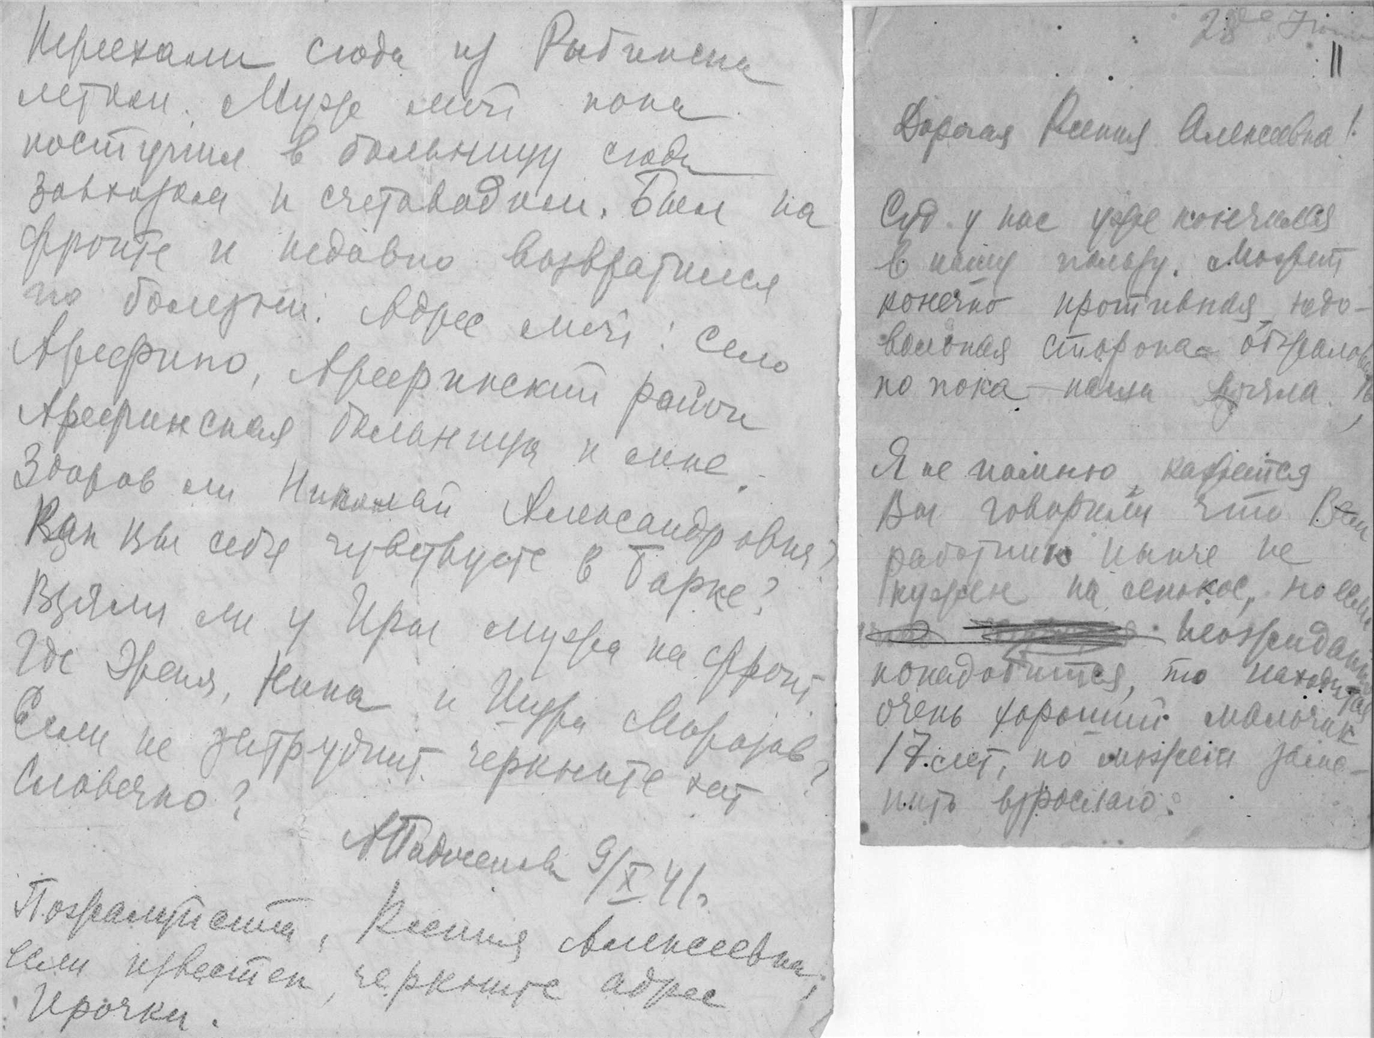 Переехали сюда из Рыбинска
летом. Муж мой пока
поступил в больницу сюда
завхозом и счетоводом. Был на
фронте и недавно возвратился
по болезни. Адрес мой: село
Арефино, Арефинский район
Арефинская больница и мне.
Здоров ли Николай Александрович?
Как Вы себя чувствуете в Борке?
Взяли ли у Иры мужа на фронт
Где Женя, Нина и Шура Морозов?
Если не затруднит черкните хот
словечко?
9/X 41 г.
Пожалуйста, Ксения Алексеевна,
если известен, черкните адрес
Ирочки.
28го
11
Дорогая Ксения Алексеевна!
Суд у нас уже кончился
в нашу пользу. Может
конечно противная недо-
вольная сторона обжаловать
но пока наша взяла.
Я не помню, кажется
Вы говорили что Вам
работник нынче не
нужен на сенокос, но если
неожиданно
понадобится, то находится
очень хороший мальчик
17 лет, но может заме-
нить взрослаго.